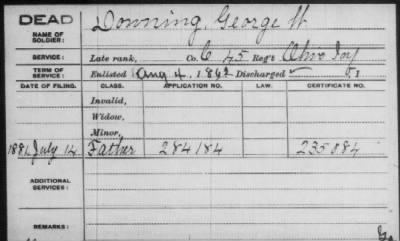 DEAD
NAME OF SOLDIER: Downing, George W.
SERVICE: Late rank, Co. C 45 Reg't Ohio Inf
TERM OF SERVICE: Enlisted Aug 4, 1862 Discharged
DATE OF FILING. CLASS. APPLICATION NO. LAW. CERTIFICATE NO.
Invalid,
Widow,
Minor,
1881 July 14 Father 284184 235084
ADDITIONAL SERVICES:
REMARKS: